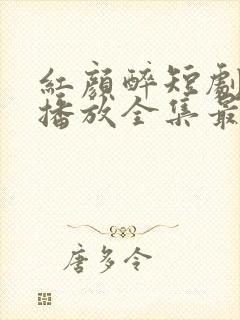 紅顔醉短劇
播放全集最
唐多令